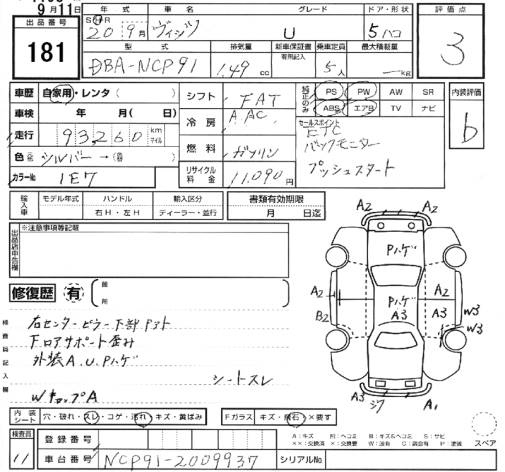 9月11日
出品番号
181
年 式 車 名 グレード ドア・形状
20年9月 ヴィッツ U 5ハコ
型 式 排気量 新車保証書 有用記入 乗車定員 最大積載量
DBA-NCP91 1.49cc 5人 kg
評 価 点
3
車歴 自家用・レンタ( )
車検 年 月( 日)
走行 93,260 km マイル
色 シルバー →
カラーNo. 1E7
シフト FAT
冷房 AAC
燃料 ガソリン
リサイクル料金 11,090円
純正のみ PS PW AW SR
ABS エアB TV ナビ
セールスポイント
ETC
バックモニター
プッシュスタート
内装評価
b
輸入車 モデル年式 ハンドル 輸入区分
右H・左H ディーラー・並行
書類有効期限
月 日迄
出品店申告欄
※注意事項等記載
修復歴 有 箇所
検査員記入欄
右センターピラー下部
Fロアサポート歪み
外装A.U.Pハゲ
シートスレ
WキップA
内装シート 穴・破れ・スレ・コゲ・汚れ・キズ・黄ばみ
Fガラス キズ・飛石・×要す
検査員
11
登録番号
車台番号 NCP91-2009937
シリアルNo.
A2 A2
Pハゲ
A2 A2
Pハゲ
B2 A3 A3 W3
W3
A3
A1
スペア